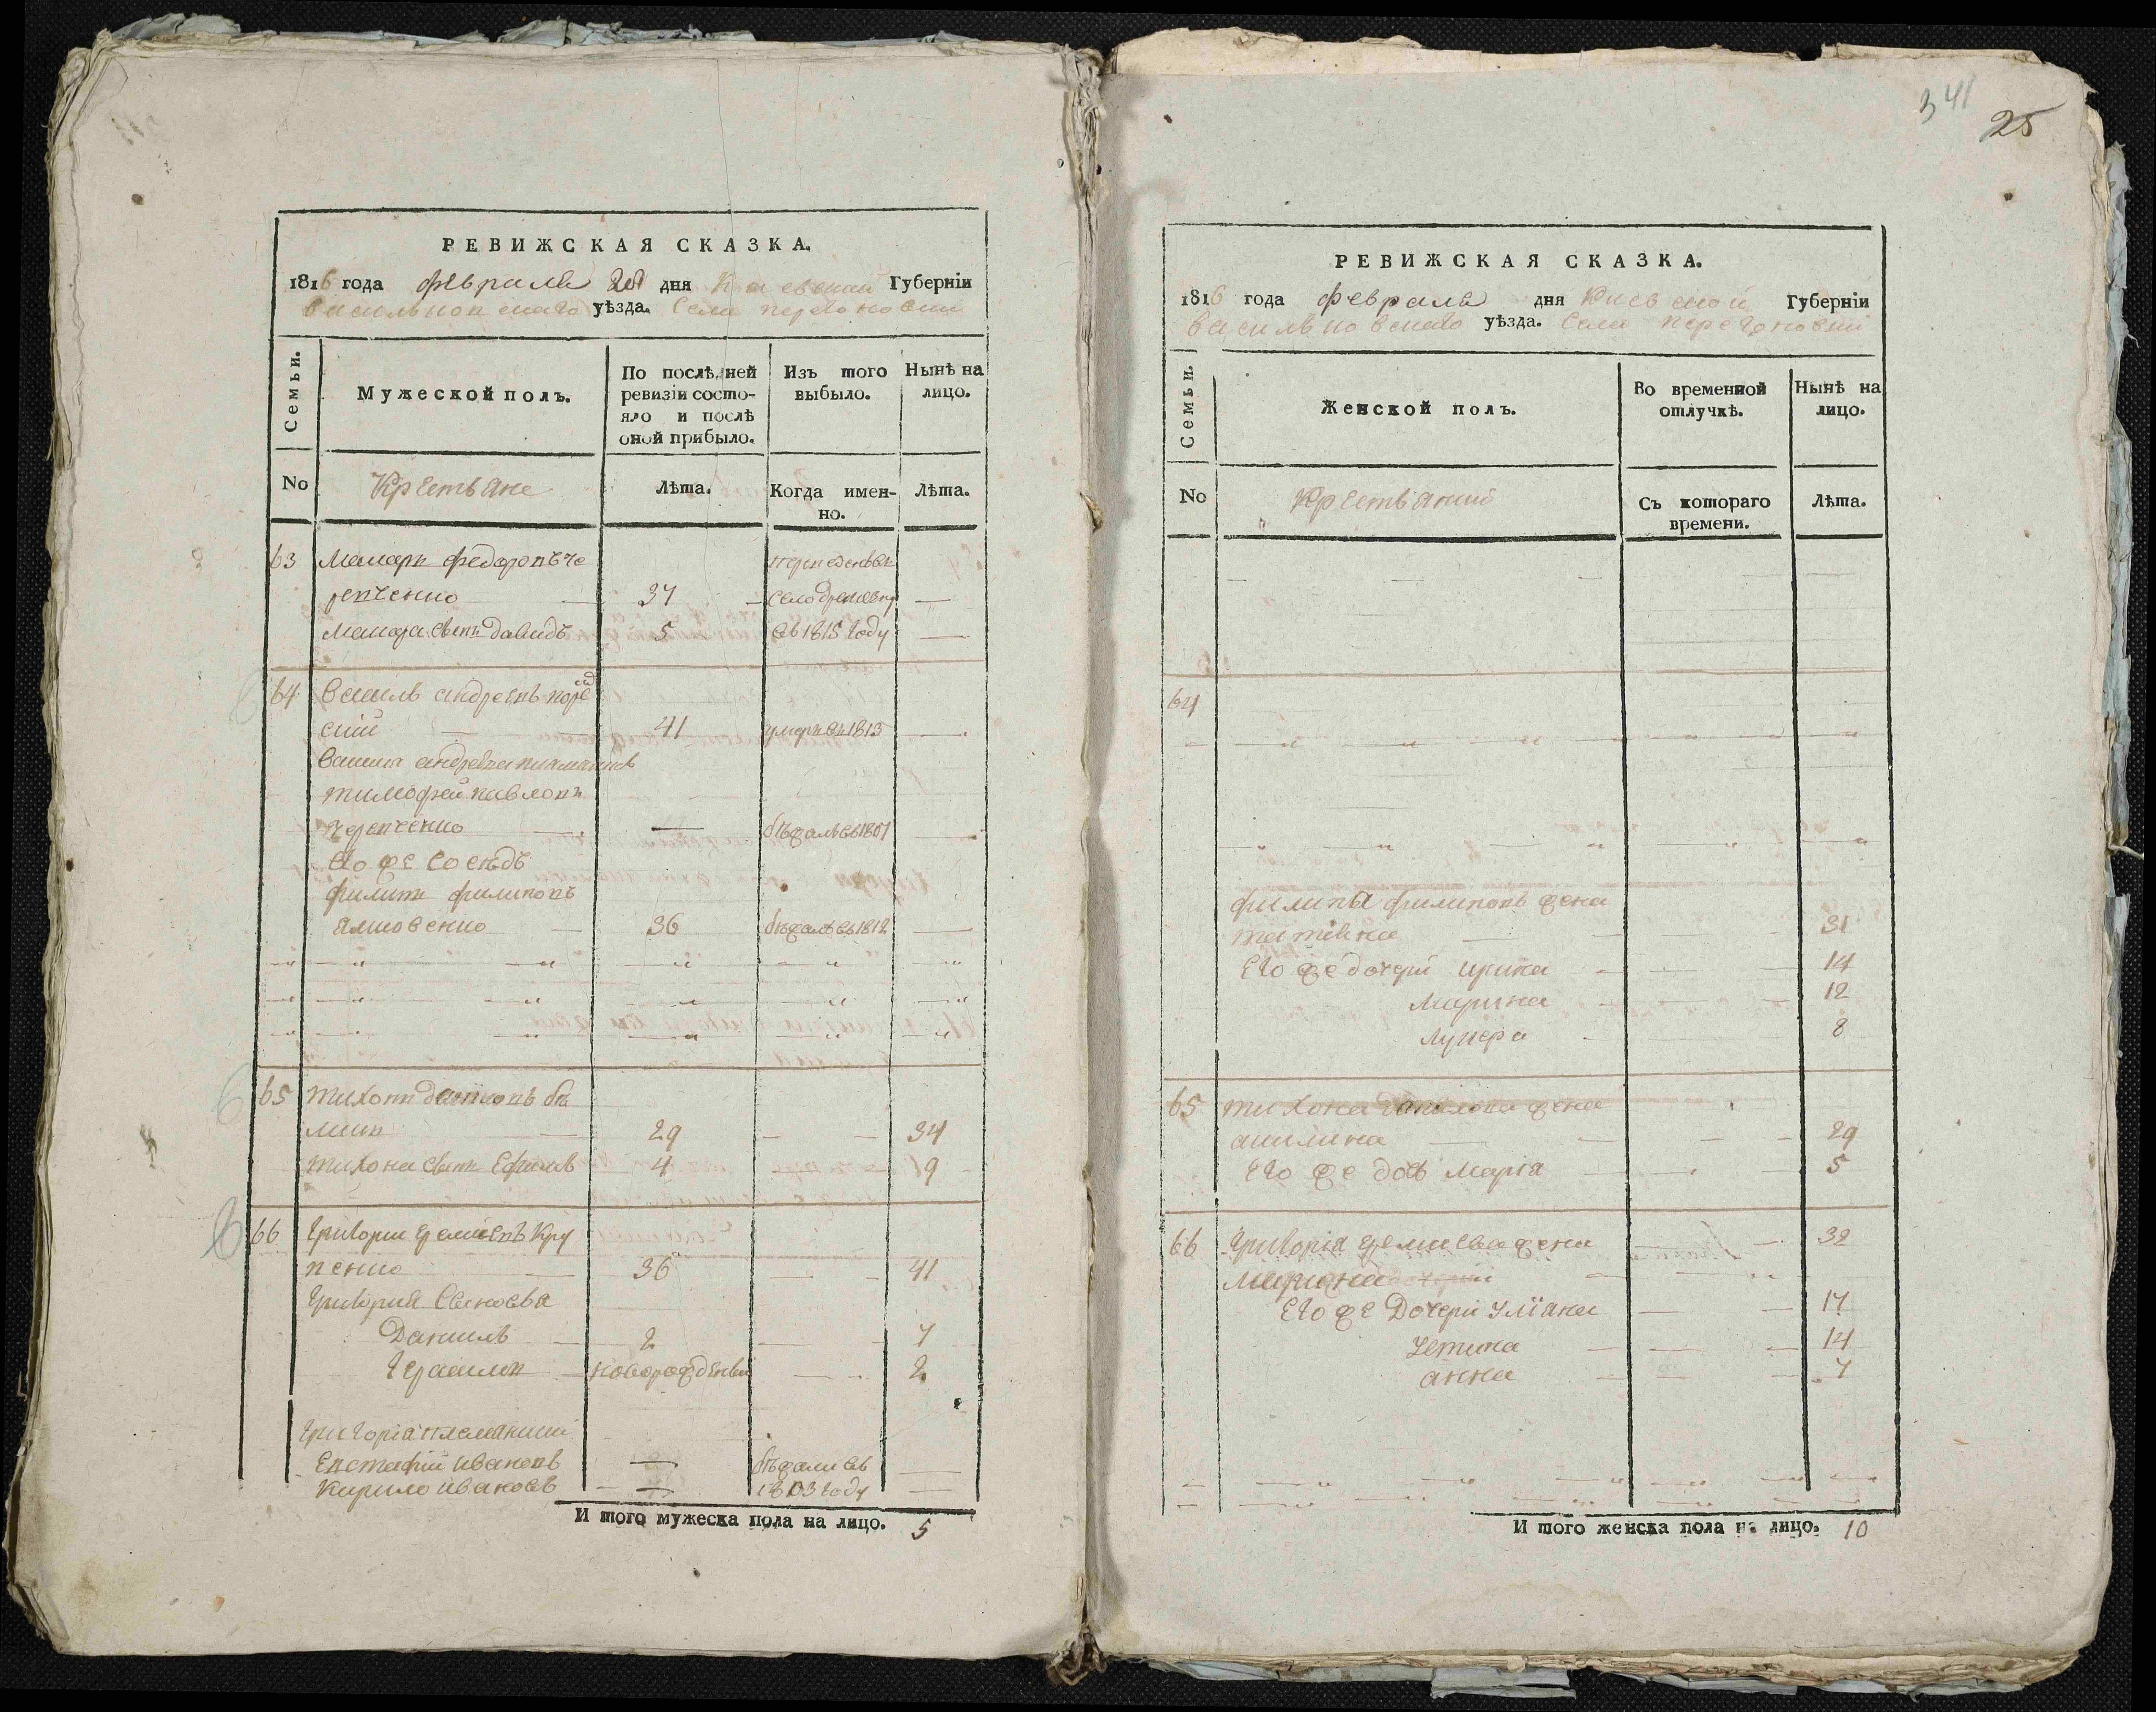 РЕВИЖСКАЯ СКАЗКА.
1816 года февраля дня Киевской Губерніи
Васильковскаго уѣзда. Села Перегоновки
Семьи.
Мужеской полъ.
По послѣдней
ревизіи состо-
яло и послѣ
оной прибыло.
Изъ того
выбыло.
Нынѣ на
лицо.
No
Крестьяне
Лѣта.
Когда имен-
но.
Лѣта.
63 Макаръ Федоровъ Че
репченко 37 село
Макара сынъ Давидъ 5 въ 1815 году
64 Василь Андреевъ
скій 41 умеръ въ 1813
Василя Андреева племянникъ
Тимофей Павловъ
Черепченко бѣжалъ въ 1807
его же соседъ
Филипъ Филиповъ
36 бѣжалъ въ 1812
65 Тихонъ
29 34
Тихона сынъ Ефимъ 4 9
66 Григорий Еремиевъ Кру
пенко 36 41
Григория сыновья
Данилъ 2 7
Герасимъ новорожденъ 2
Григорія племянники
Евстафій Ивановъ бѣжали въ
Кирило Ивановъ 1803 году
И того мужеска пола на лицо. 5
341
25
РЕВИЖСКАЯ СКАЗКА.
1816 года февраля дня Киевской Губерніи
Васильковскаго уѣзда. Села Перегоновки
Семьи.
Женской полъ.
Во временной
отлучкѣ.
Нынѣ на
лицо.
No
Крестьянки
Съ котораго
времени.
Лѣта.
64
Филипа Филипова жена
Татіана 31
Его же дочери Ирина 14
Марина 12
Лукера 8
65 Тихона жена
Акилина 29
Его же дочь Марія 5
66 Григорія Еремиева жена 32
Марина
Его же дочери Уліана 17
Устина 14
Анна 7
И того женска пола на лицо. 10